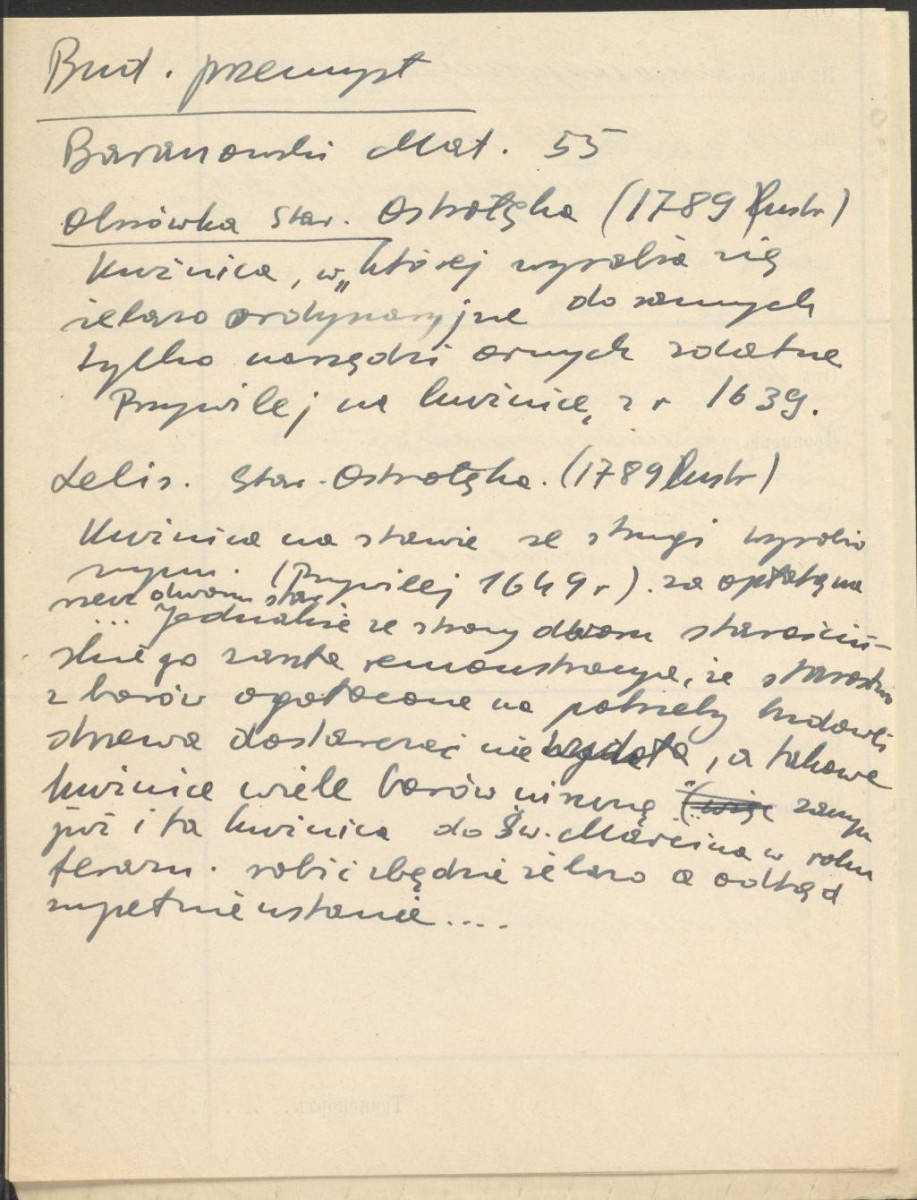 Bud. przemysł
Baranowski Mat. 55
Olszówka star. Ostrołęka (1789 lustr)
Kuźnica, w „której wyrabia się
żelazo ordynaryjne do samych
tylko narzędzi ornych zdatne
Przywilej na kuźnicę z r 1639.
Lelis. star. Ostrołęka. (1789 lustr)
Kuźnica na stawie ze strugi wyrobio
nym. (Przywilej 1649 r). za opłatą na
rzecz dworu star
... Jednakże ze strony dworu starościń-
skiego zaszła remonstracya, że starostwo
z borów ogołocone na potrzeby budowli
drzewa dostarczać nie wydoła, a takowe
kuźnice wiele borów niszczą
już i ta kuźnica do Św. Marcina w roku
terazn. robić będzie żelazo a odtąd
zupełnie ustanie ....